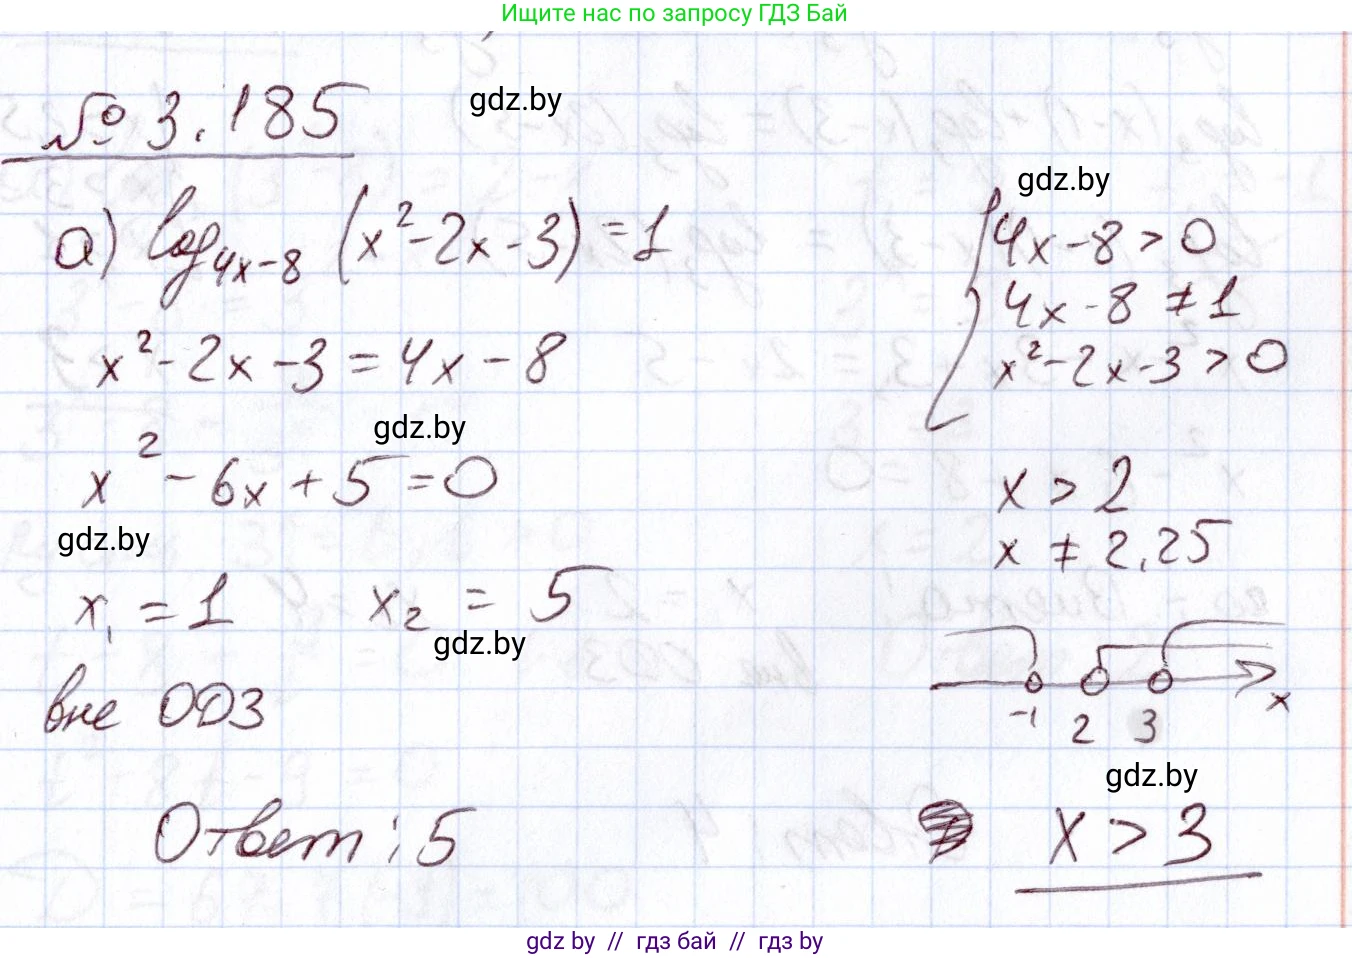 Ищите нас по запросу ГДЗ Бай
№ 3.185
gdz.by
а) log₄ₓ₋₈ (x² - 2x - 3) = 1
x² - 2x - 3 = 4x - 8
gdz.by
x² - 6x + 5 = 0
gdz.by
x₁ = 1 x₂ = 5
gdz.by
вне ОДЗ
Ответ: 5
gdz.by
4x - 8 > 0
4x - 8 ≠ 1
x² - 2x - 3 > 0
x > 2
x ≠ 2,25
-1 2 3 x
gdz.by
x > 3
gdz by // гдз бай // гдз by